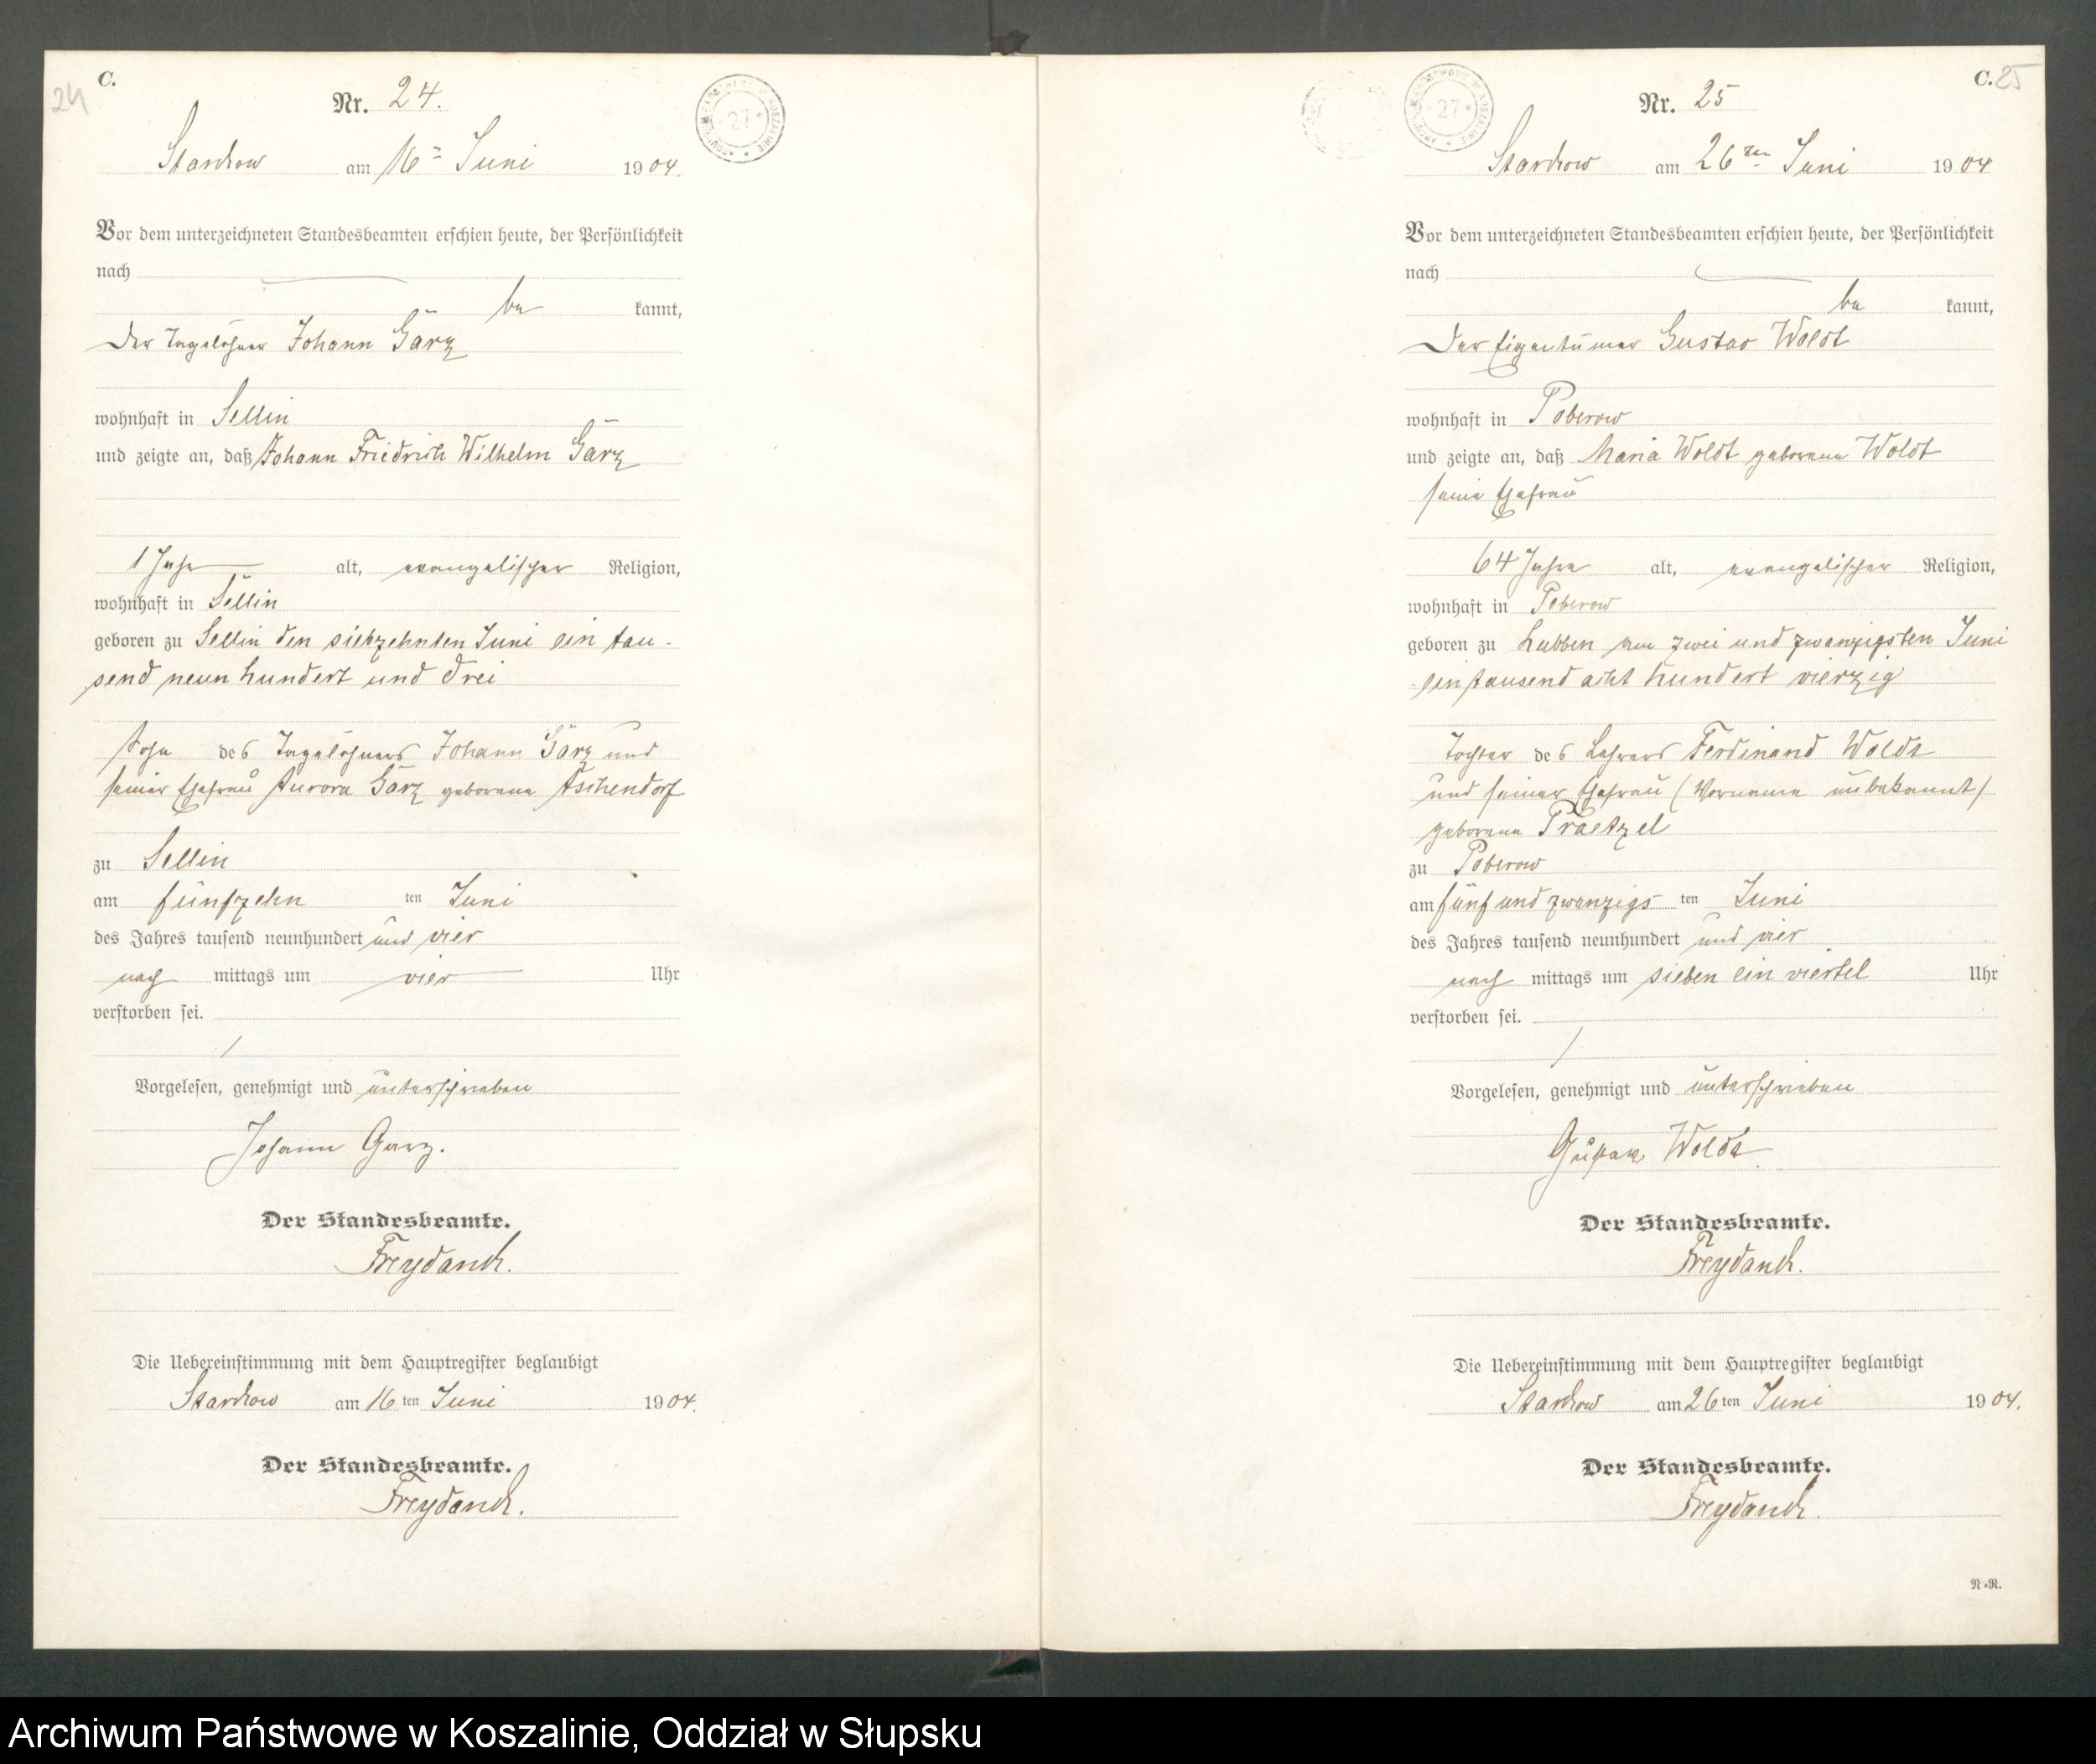 24
C.
Nr. 24.
27
Starckow am 16ten Juni 1904.
Vor dem unterzeichneten Standesbeamten erschien heute, der Persönlichkeit
nach
be kannt,
Der Tagelöhner Johann Garz
wohnhaft in Sellin
und zeigte an, daß Johann Friedrich Wilhelm Garz
1 Jahr alt, evangelischer Religion,
wohnhaft in Sellin
geboren zu Sellin den siebzehnten Juni ein tau-
send neun hundert und drei
Sohn des Tagelöhners Johann Garz und
seiner Ehefrau Aurora Garz geborene Aschendorf
zu Sellin
am fünfzehn ten Juni
des Jahres tausend neunhundert und vier
nach mittags um vier Uhr
verstorben sei.
Vorgelesen, genehmigt und unterschrieben
Johann Garz.
Der Standesbeamte.
Freydanck.
Die Uebereinstimmung mit dem Hauptregister beglaubigt
Starckow am 16ten Juni 1904.
Der Standesbeamte.
Freydanck.
C. 25
Nr. 25
27
Starckow am 26ten Juni 1904
Vor dem unterzeichneten Standesbeamten erschien heute, der Persönlichkeit
nach
be kannt,
Der Eigentümer Gustav Woldt
wohnhaft in Poberow
und zeigte an, daß Maria Woldt geborene Woldt
seine Ehefrau
64 Jahre alt, evangelischer Religion,
wohnhaft in Poberow
geboren zu Lubben am zwei und zwanzigsten Juni
ein tausend acht hundert vierzig
Tochter des Lehrers Ferdinand Woldt
und seiner Ehefrau (Vorname unbekannt)
geborene Praetzel
zu Poberow
am fünf und zwanzigs ten Juni
des Jahres tausend neunhundert und vier
nach mittags um sieben ein viertel Uhr
verstorben sei.
Vorgelesen, genehmigt und unterschrieben
Gustav Woldt
Der Standesbeamte.
Freydanck.
Die Uebereinstimmung mit dem Hauptregister beglaubigt
Starckow am 26ten Juni 1904.
Der Standesbeamte.
Freydanck.
N.-R.
Archiwum Państwowe w Koszalinie, Oddział w Słupsku